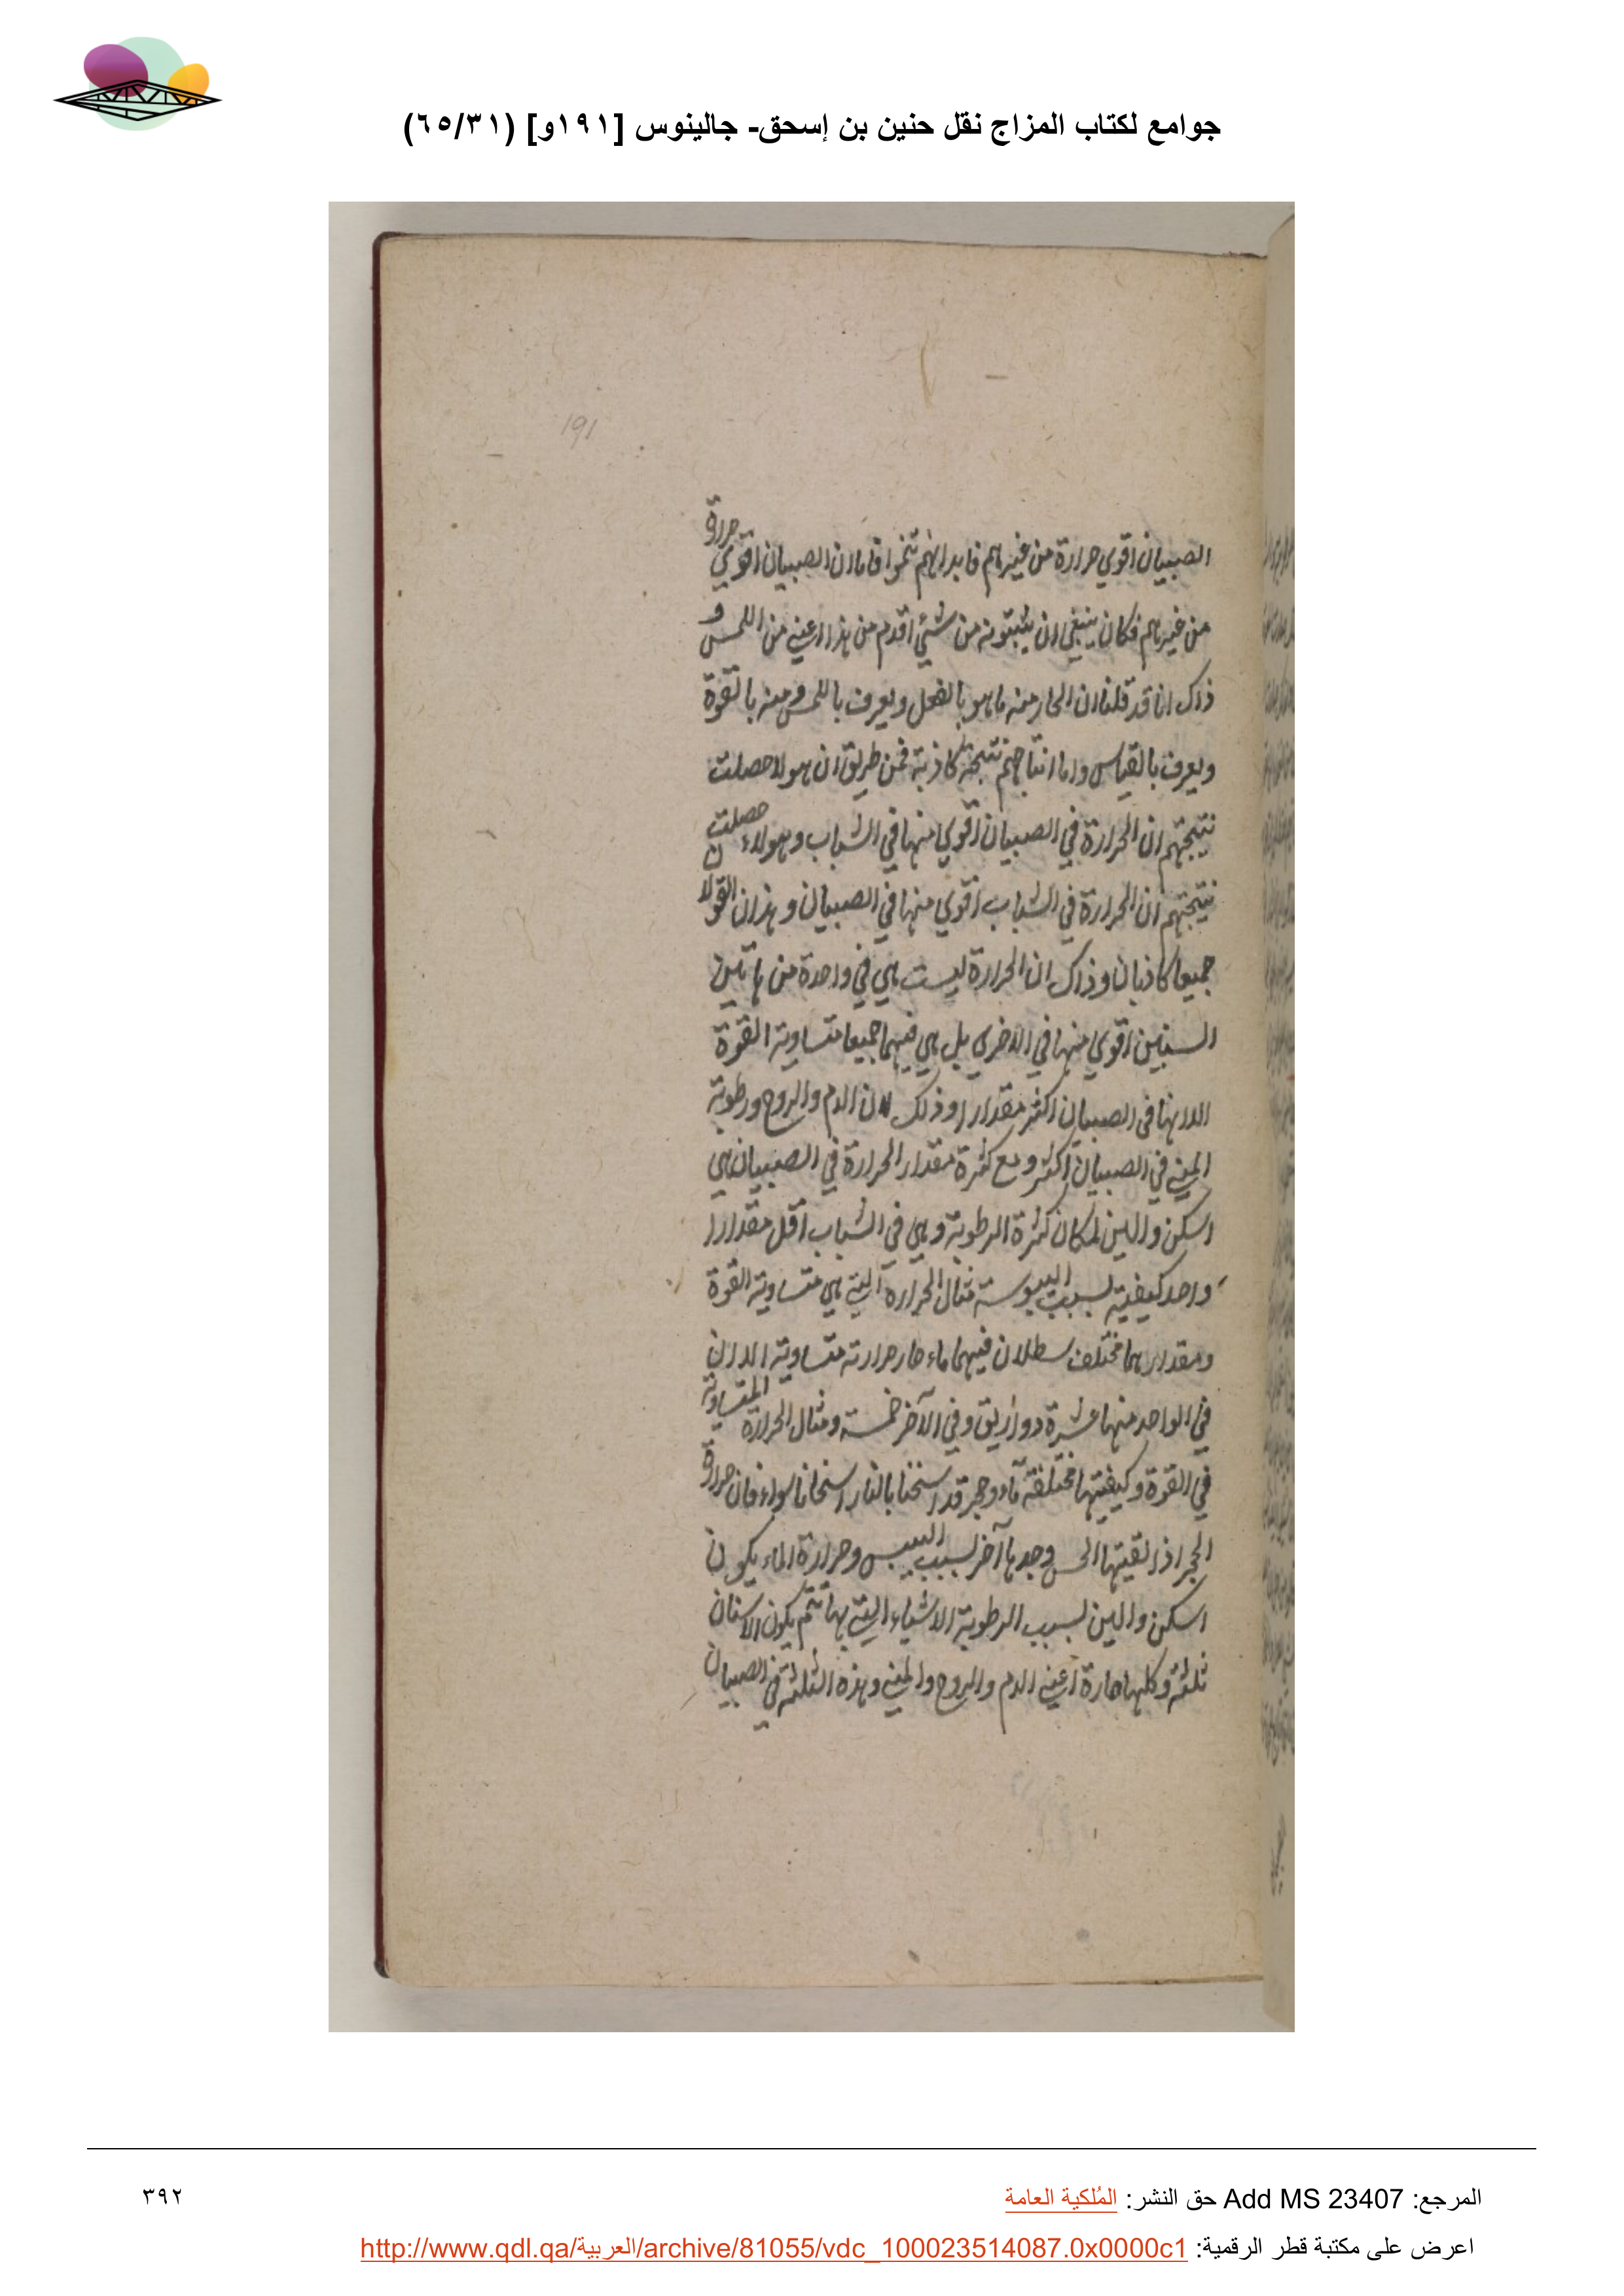 جوامع لكتاب المزاج نقل حنين بن إسحق- جالينوس [١٩١و] (٦٥/٣١)
191
الصبيان اقوي حرارة من غيرهم فابدانهم تنموا فاما ان الصبيان اقوي حرارة
من غيرهم فكان ينبغي ان يثبتونه من شئ اقدم من هذا اعني من اللمس و
ذلك انا قد قلنا ان الحار منه ما هو بالفعل ويعرف باللمس ومنه بالقوة
ويعرف بالقياس واما انتاجهم نتيجة كاذبة فمن طريق ان هولا حصلت
نتيجتهم ان الحرارة في الصبيان اقوي منها في الشباب وهولاء حصلت
نتيجتهم ان الحرارة في الشباب اقوي منها في الصبيان وهذان القولان
جميعا كاذبان وذاك ان الحرارة ليست هي في واحدة من هاتين
السنين اقوي منها في الاخري بل هي فيهما جميعا متساوية القوة
الا انها في الصبيان اكثر مقدارا وذلك لان الدم والروح ورطوبة
المني في الصبيان اكثر ومع كثرة مقدار الحرارة في الصبيان هي
اسكن والين لمكان كثرة الرطوبة وهي في الشباب اقل مقدارا
واحد كيفية لسبب اليبوسة مثال الحرارة التي هي متساوية القوة
ومقدارهما مختلف سطلان فيهما ماء حار حرارته متساوية الا ان
في الواحد منهما عشرة دواريق وفي الآخر خمسة ومثال الحرارة المتساوية
في القوة وكيفيتها مختلفة ماء وحجر قد اسخنا بالنار اسخانا سواء فان حرارة
الحجر اذا لقيتها الحس وجدها آخر لسبب اليبس وحرارة الماء يكون
اسكن والين لسبب الرطوبة الاشياء التي بها تتم يكون الاسنان
ثلثة وكلها حارة اعني الدم والروح والمني وهذه الثلثة في الصبيان
المرجع: Add MS 23407 حق النشر: المُلكية العامة
٣٩٢
اعرض على مكتبة قطر الرقمية: http://www.qdl.qa/العربية/archive/81055/vdc_100023514087.0x0000c1